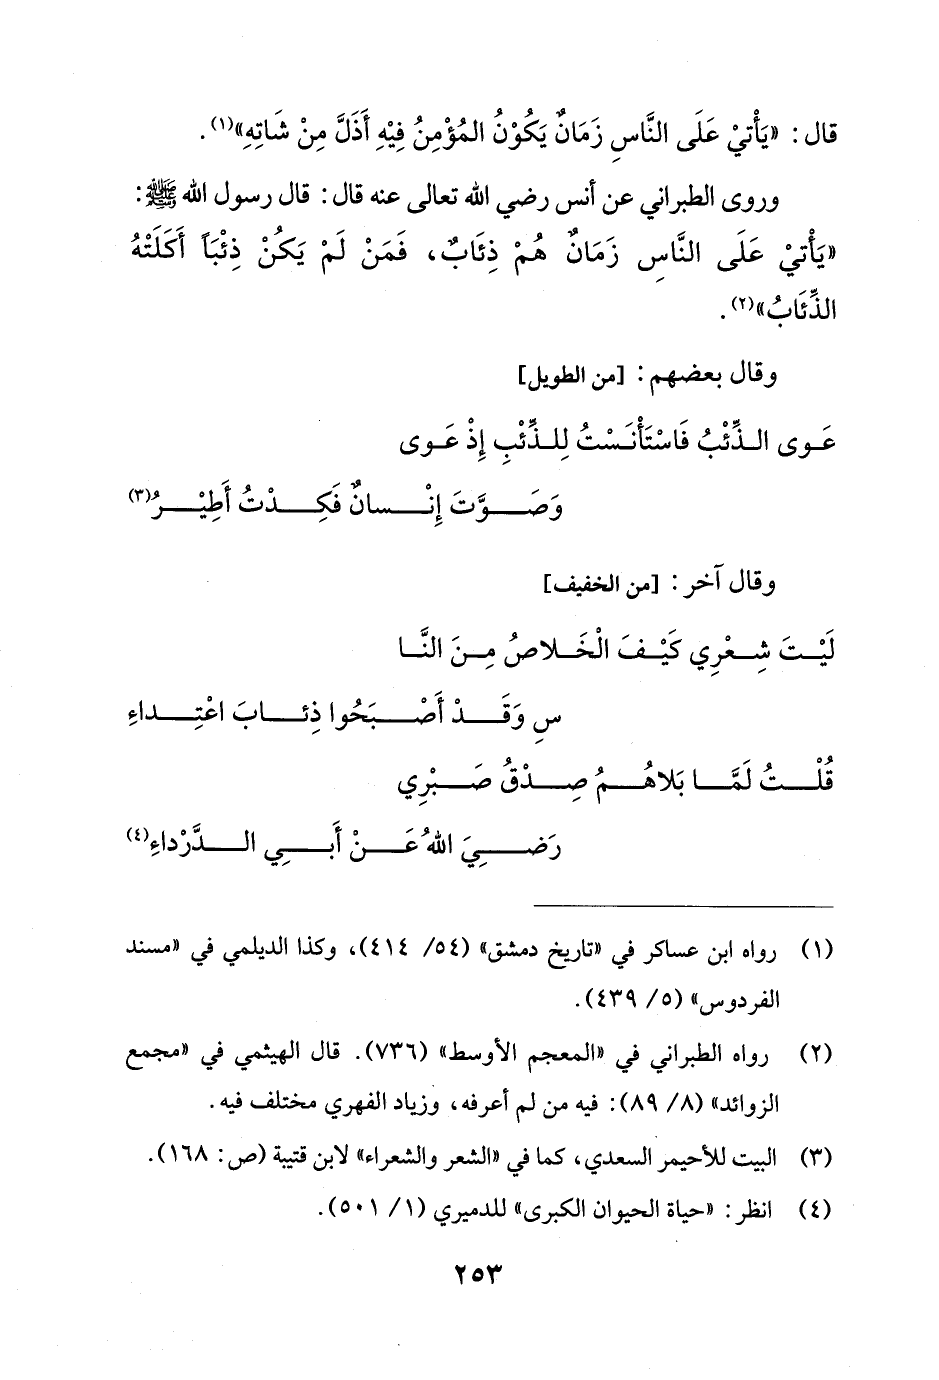 قال: «يَأْتيْ عَلَى النَّاسِ زَمَانٌ يَكُوْنُ المُؤْمِنُ فِيْهِ أَذَلَّ مِنْ شَاتِهِ»(١).
وروى الطبراني عن أنس رضي الله تعالى عنه قال: قال رسول الله ﷺ:
«يَأْتيْ عَلَى النَّاسِ زَمَانٌ هُمْ ذِئَابٌ، فَمَنْ لَمْ يَكُنْ ذِئْبَاً أَكَلَتْهُ
الذِّئَابُ»(٢).
وقال بعضهم: [من الطويل]
عَوى الذِّئْبُ فَاسْتَأْنَسْتُ لِلذِّئْبِ إِذْ عَوى
وَصَوَّتَ إِنْسانٌ فَكِدْتُ أَطِيْرُ(٣)
وقال آخر: [من الخفيف]
لَيْتَ شِعْرِي كَيْفَ الْخَلاصُ مِنَ النَّا
سِ وَقَدْ أَصْبَحُوا ذِئابَ اعْتِداءِ
قُلْتُ لَمَّا بَلاهُمُ صِدْقُ صَبْرِي
رَضِيَ اللهُ عَنْ أَبي الدَّرْداءِ(٤)
(١) رواه ابن عساكر في «تاريخ دمشق» (٥٤/ ٤١٤)، وكذا الديلمي في «مسند
الفردوس» (٥/ ٤٣٩).
(٢) رواه الطبراني في «المعجم الأوسط» (٧٣٦). قال الهيثمي في «مجمع
الزوائد» (٨/ ٨٩): فيه من لم أعرفه، وزياد الفهري مختلف فيه.
(٣) البيت للأحيمر السعدي، كما في «الشعر والشعراء» لابن قتيبة (ص: ١٦٨).
(٤) انظر: «حياة الحيوان الكبرى» للدميري (١/ ٥٠١).
٢٥٣